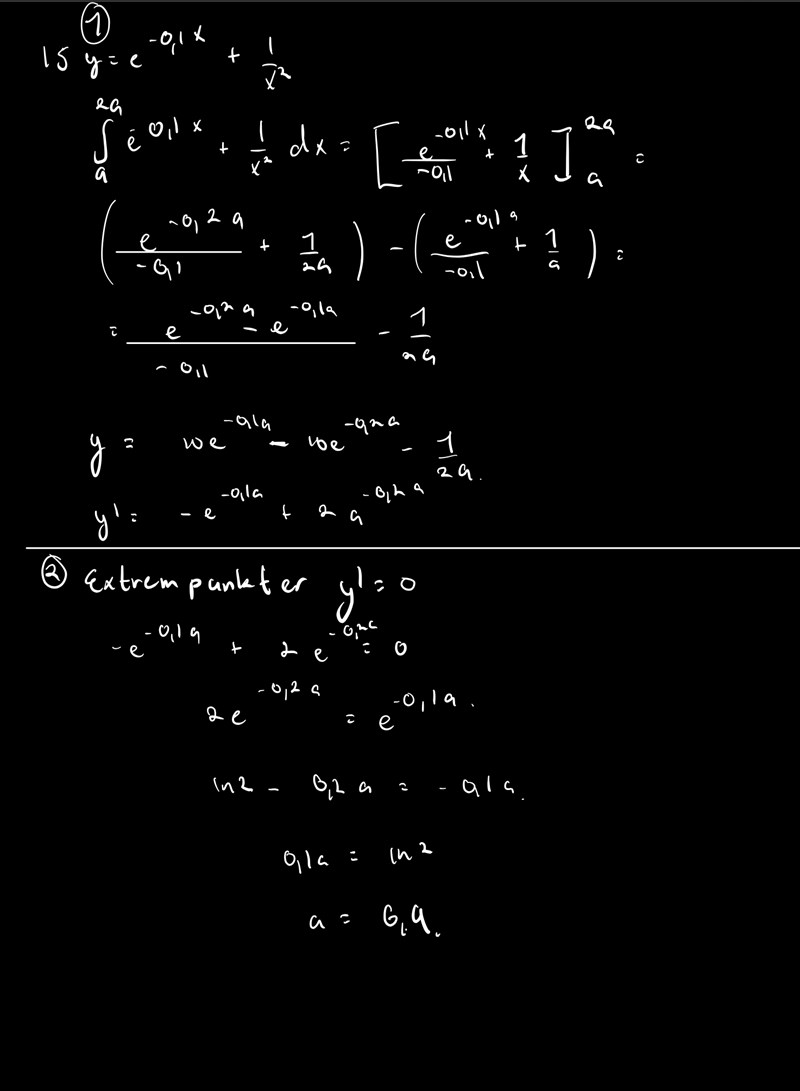 ①
15 y = e^{-0,1x} + 1/x²
∫_a^{2a} e^{-0,1x} + 1/x² dx = [e^{-0,1x}/-0,1 + 1/x]_a^{2a} =
(e^{-0,2a}/-0,1 + 1/2a) - (e^{-0,1a}/-0,1 + 1/a) =
= (e^{-0,2a} - e^{-0,1a})/-0,1 - 1/2a
y = 10e^{-0,1a} - 10e^{-0,2a} - 1/2a.
y' = -e^{-0,1a} + 2a^{-0,2a}
② Extrempunkter y' = 0
-e^{-0,1a} + 2e^{-0,2a} = 0
2e^{-0,2a} = e^{-0,1a}.
ln2 - 0,2a = -0,1a.
0,1a = ln2
a = 6,9.